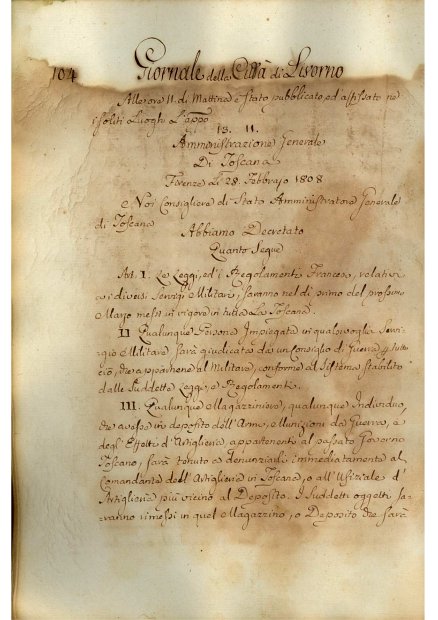 104
Giornale della Città di Livorno
Alle ore 11. di Mattina è stato pubblicato, ed affissato ne
i soliti Luoghi L'appo
13. 11.
Amministrazione Generale
Di Toscana
Firenze Li 28. Febbrajo 1808
Noi Consigliere di Stato Amministratore Generale
di Toscana
Abbiamo Decretato
Quanto Segue
Art. I. Le Leggi, ed i Regolamenti Francesi, relativi
a i diversi Servigj Militari, saranno nel dì primo del prossimo
Marzo messi in vigore in tutta La Toscana.
II Qualunque Persona Impiegata in qualsivoglia Servi-
gio Militare sarà giudicata da un Consiglio di Guerra p tutto
ciò, che appartiene al Militare, conforme al Sistema stabilito
dalle Suddette Leggi, e Regolamenti.
III. Qualunque Magazziniere, qualunque Individuo,
che avesse in deposito dell'Armi, Munizioni da Guerra, e
degl'Effetti d'Artiglieria, appartenenti al passato Governo
Toscano, sarà tenuto a denunziarli immediatamente al
Comandante dell'Artiglieria in Toscana, o all'Ufiziale d'
Artiglieria più vicino al Deposito. I Suddetti oggetti sa-
ranno rimessi in quel Magazzino, o Deposito che sarà